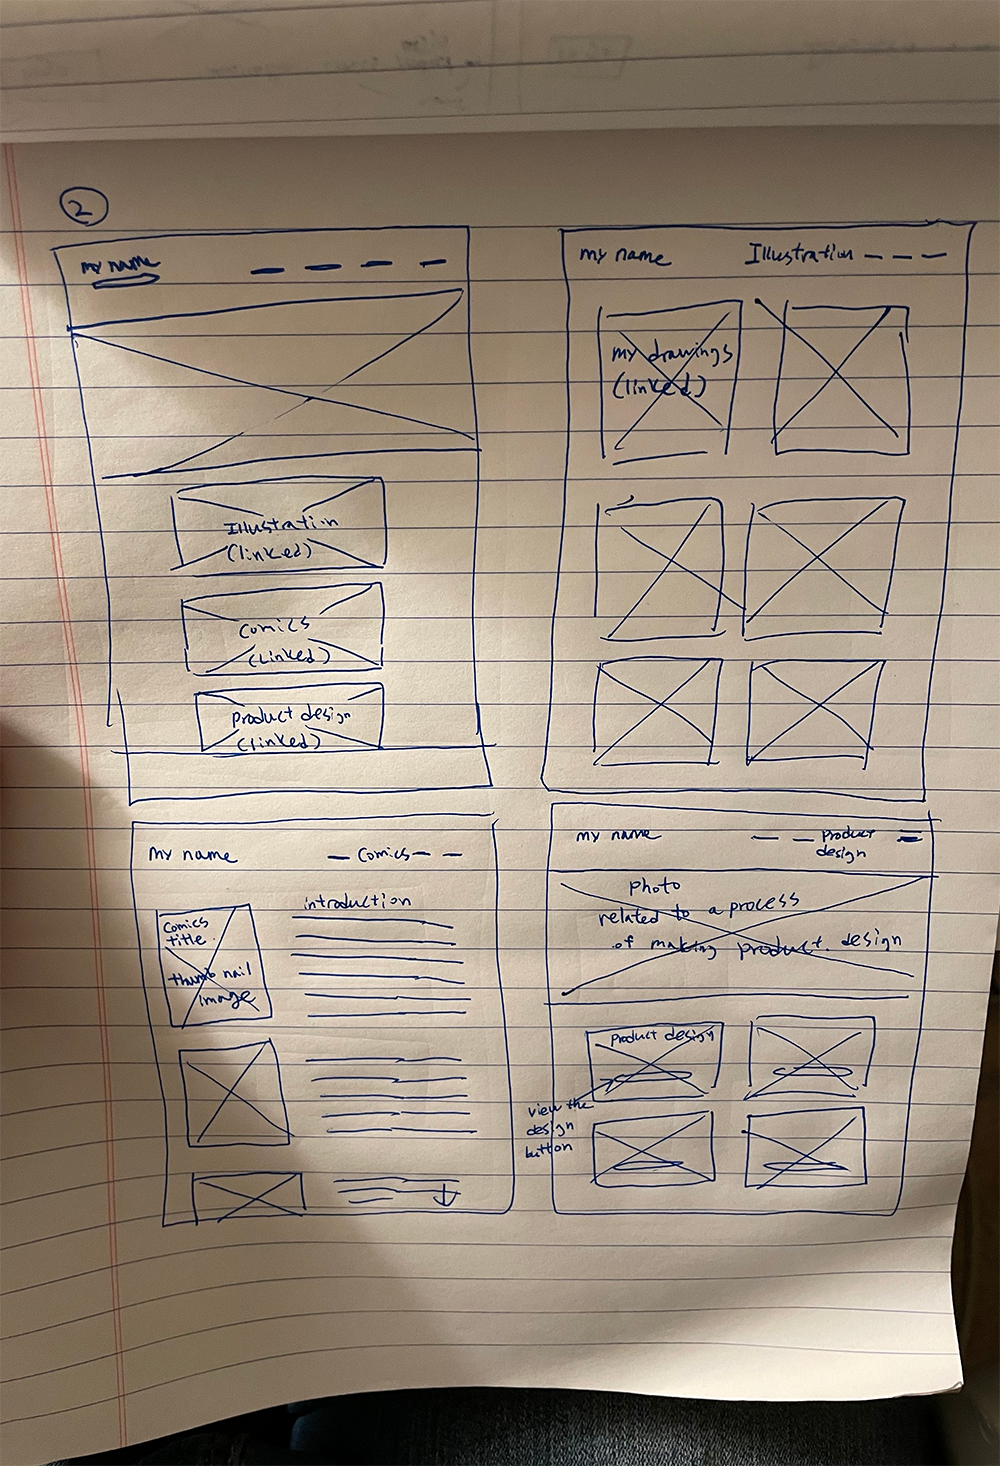 2
my name
Illustration
(linked)
Comics
(linked)
Product design
(linked)
my name
Illustration
my drawings
(linked)
my name
Comics
Comics
title
thumb nail
image
introduction
my name
Product
design
photo
related to a process
of making product design
Product design
view the
design
button